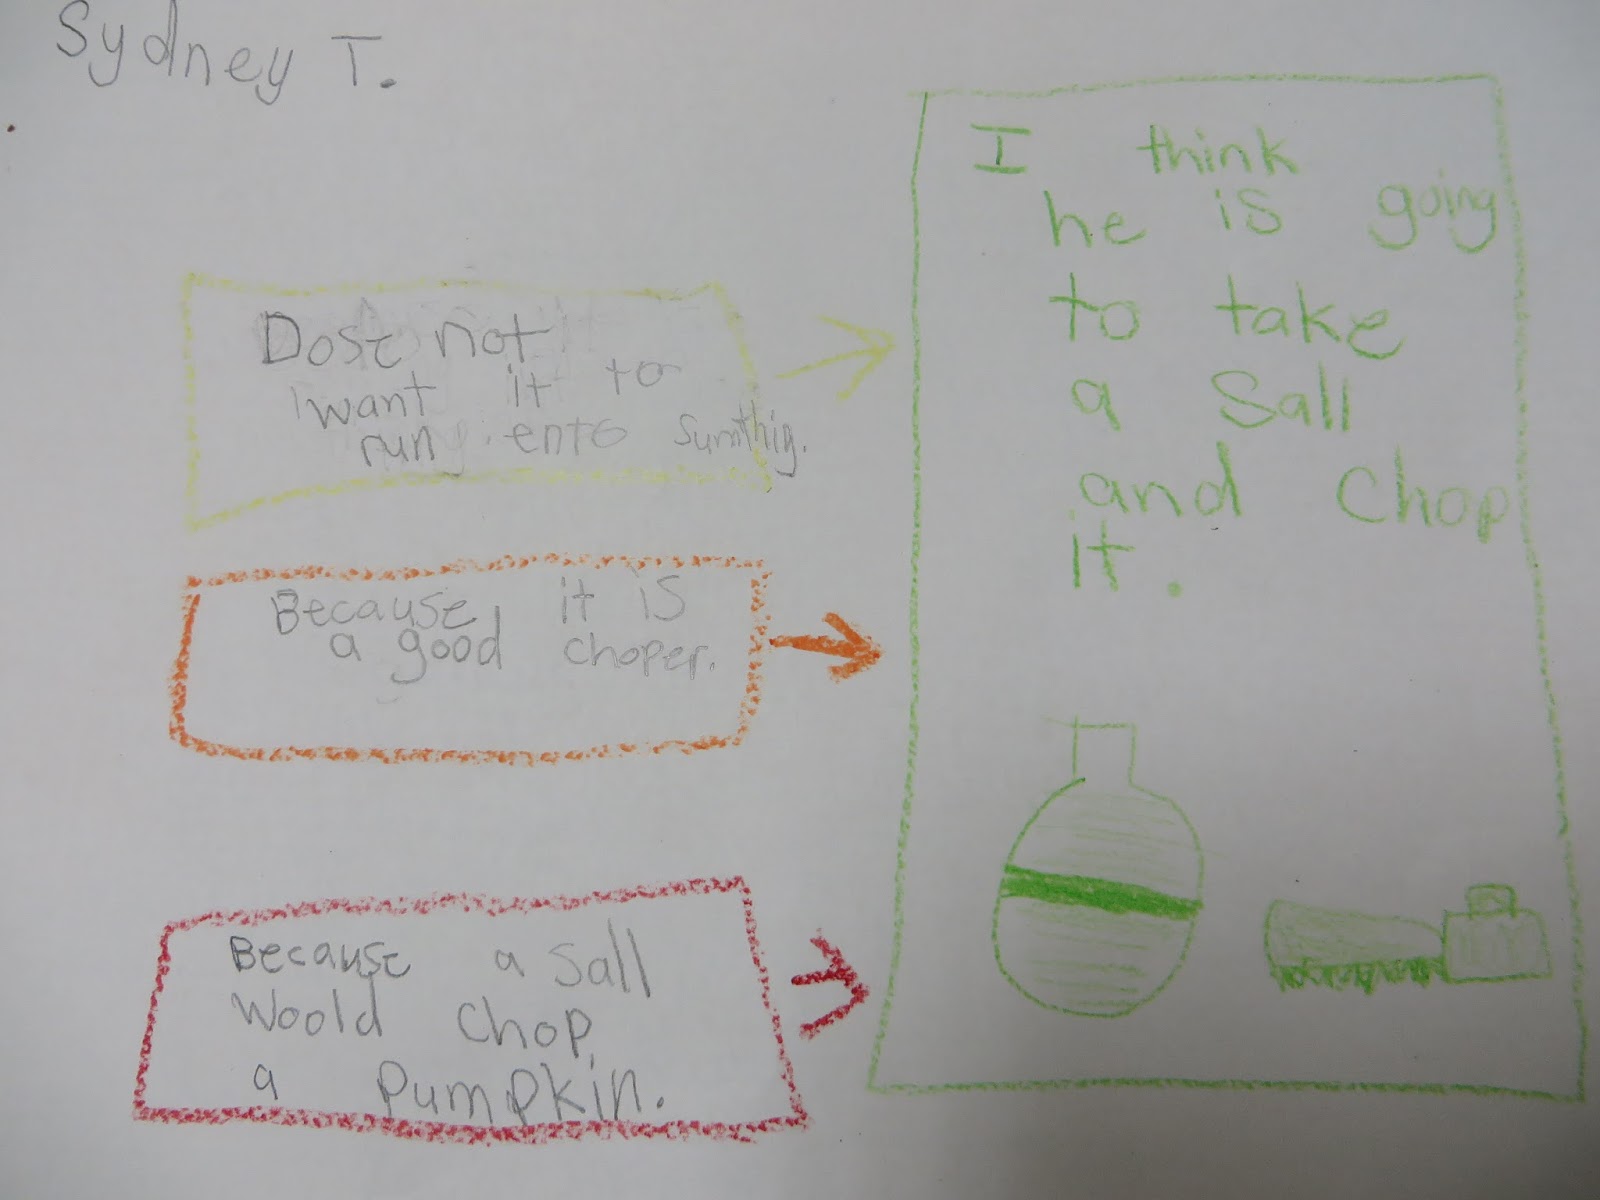 Sydney T.
Dose not
want it to
run ento sumthig.
Because it is
a good choper.
Because a Sall
Woold chop
a Pumpkin.
I think
he is going
to take
a Sall
and Chop
it.